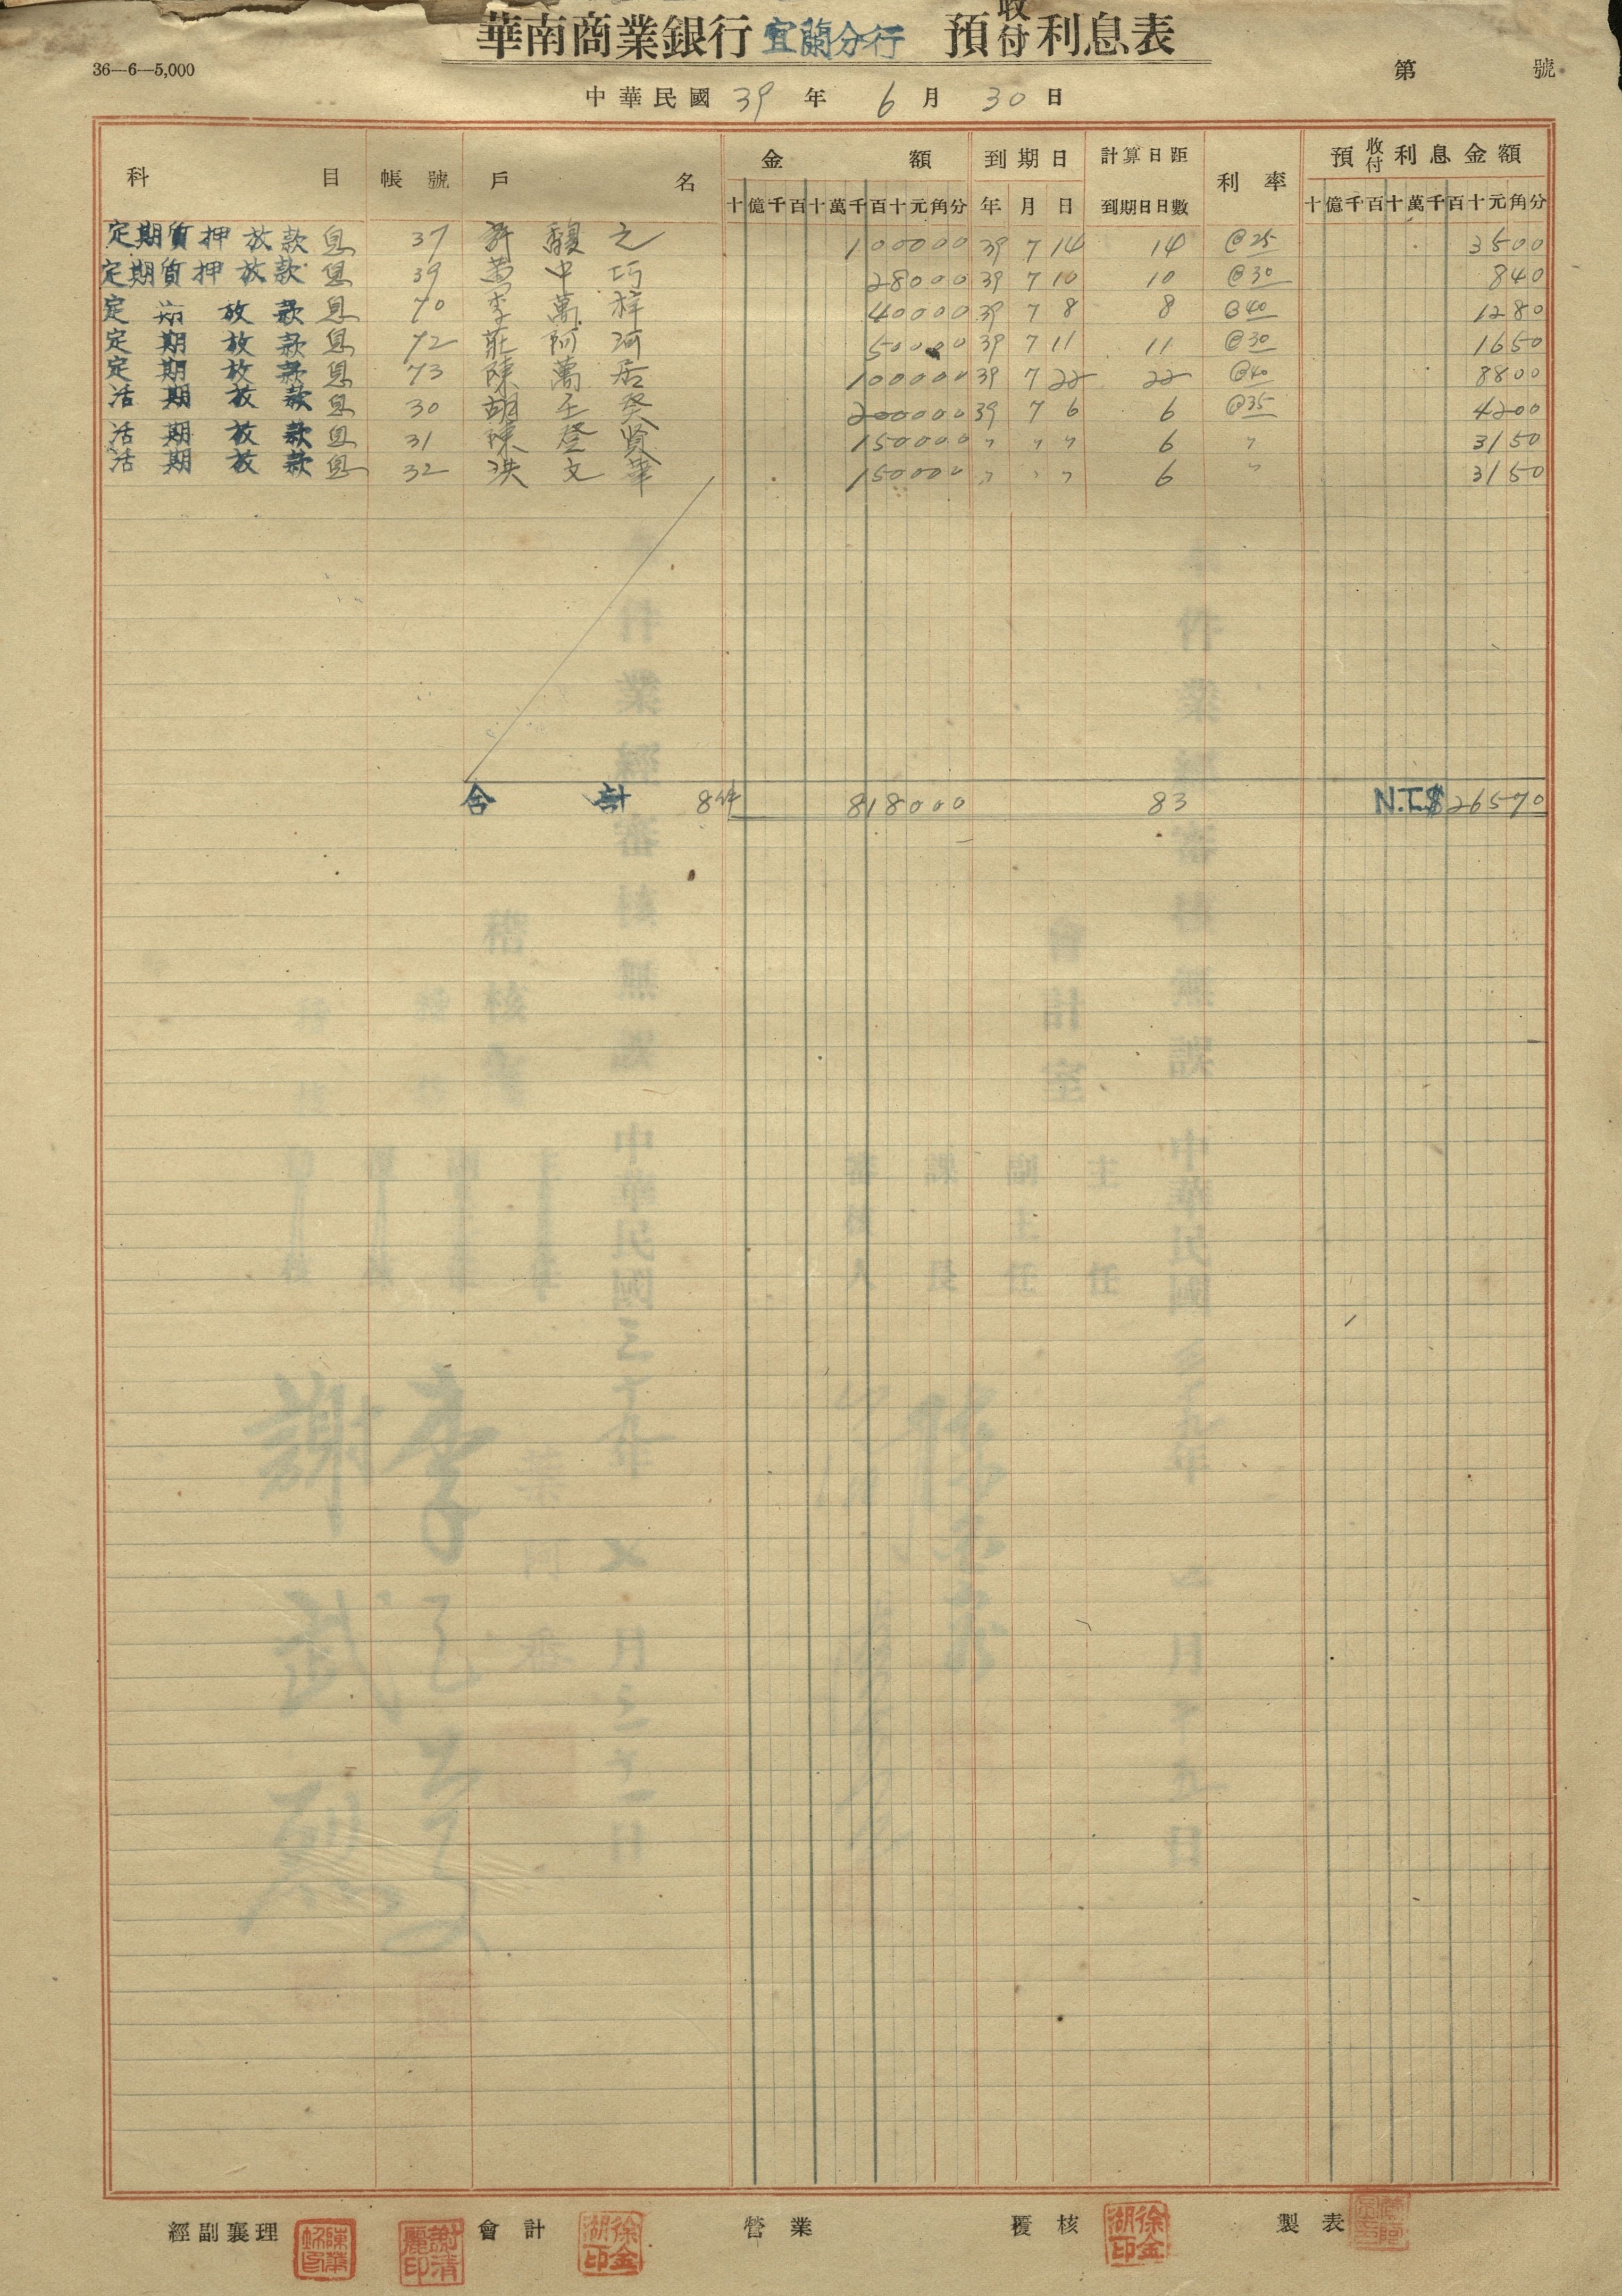 華南商業銀行 宜蘭分行 預收付利息表
36—6—5,000
第 號
中華民國 39 年 6 月 30 日
科 目 帳 號 戶 名 金 額 到期日 計算日距到期日日數 利 率 預收付利息金額
十億千百十萬千百十元角分 年 月 日 十億千百十萬千百十元角分
定期質押放款息 37 許 馥 之 100000 39 7 14 14 @25 3500
定期質押放款息 39 中 巧 28000 39 7 10 10 @30 840
定期放款息 70 李 萬 梓 40000 39 7 8 8 @40 1280
定期放款息 72 莊 阿 河 50000 39 7 11 11 @30 1650
定期放款息 73 陳 萬 居 100000 39 7 22 22 @40 8800
活期放款息 30 胡 壬 癸 200000 39 7 6 6 @35 4200
活期放款息 31 陳 登 賢 150000 〃 〃 〃 6 〃 3150
活期放款息 32 洪 文 華 150000 〃 〃 〃 6 〃 3150
合 計 8件 818000 83 N.T.$26570
經副襄理 謝清麗印 會計 徐金湖印 營業 覆核 徐金湖印 製表